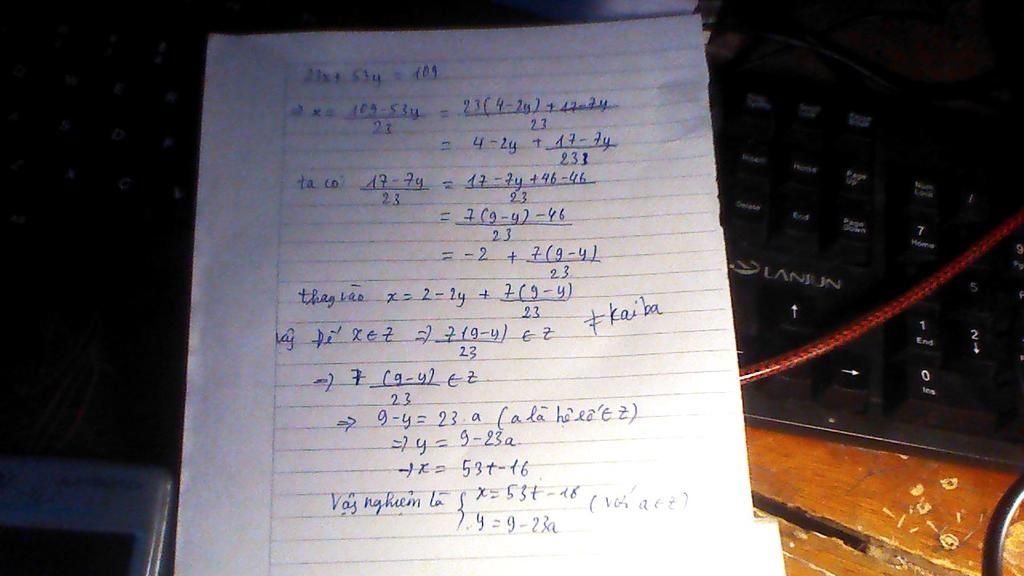 23x + 53y = 109
⇒ x = (109 - 53y)/23 = (23(4 - 2y) + 17 - 7y)/23
= 4 - 2y + (17 - 7y)/233
ta có (17 - 7y)/23 = (17 - 7y + 46 - 46)/23
= (7(9 - y) - 46)/23
= -2 + (7(9 - y))/23
thay vào x = 2 - 2y + (7(9 - y))/23
Kaiba
vậy Để x ∈ Z ⇒ (7(9 - y))/23 ∈ Z
⇒ 7 (9 - y)/23 ∈ Z
⇒ 9 - y = 23.a (a là hệ số ∈ Z)
⇒ y = 9 - 23a
→ x = 53t - 16
Vậy nghiệm là { x = 53t - 16
y = 9 - 23a (với a ∈ Z)
LANJUN
Num Lock
/
Insert
Home
Page Up
Delete
End
Page Down
7
Home
5
1
End
2
0
Ins